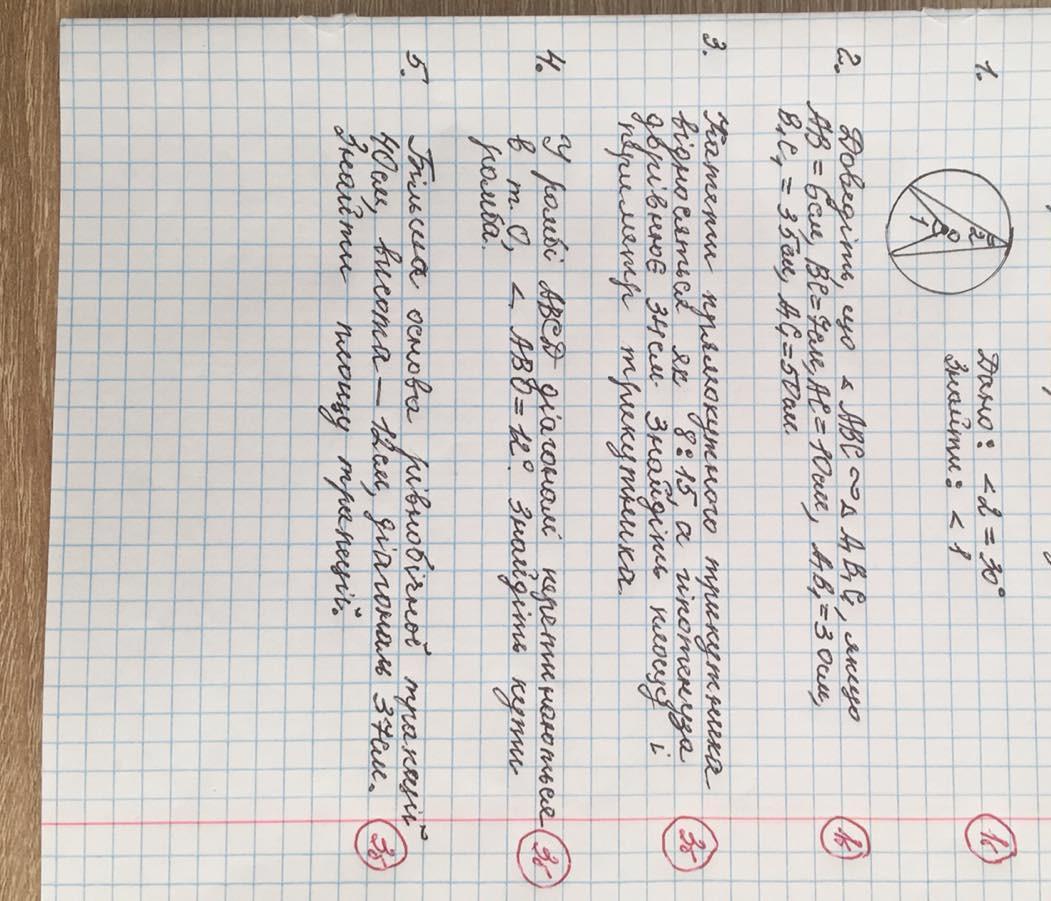 1.
1
O
2
Дано: <2 = 30°
Знайти: < 1
1б
2. Доведіть, що △ ABC ∾ △ A₁B₁C₁, якщо
AB = 6см, BC = 7см, AC = 10см, A₁B₁ = 30см,
B₁C₁ = 35см, A₁C₁ = 50см.
1б
3. Катети прямокутного трикутника
відносяться як 8:15, а гіпотенуза
дорівнює 34см. Знайдіть площу і
периметр трикутника.
3б
4. У ромбі ABCD діагоналі перетинаються
в т. О, < ABO = 12°. Знайдіть кути
ромба.
3б
5. Більша основа рівнобічної трапеції
40см, висота — 12см, діагональ 37см.
Знайти площу трапеції.
3б